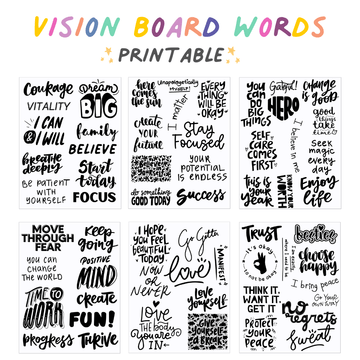 VISION BOARD WORDS
PRINTABLE
Courage
VITALITY
I CAN
& I WILL
breathe
deeply
BE PATIENT
WITH
YOURSELF
Dream
BIG
family
BELIEVE
Start
today
FOCUS
here
comes
the sun
create
YOUR
future
do something
GOOD TODAY
Unapologetically
MYSELF!
I
matter
EVERY
THING
WILL BE
-okay-
Stay
Focused
YOUR
POTENTIAL
IS ENDLESS
Success
YOU
CAN
DO
BIG
THINGS
SELF
CARE
COMES
FIRST
THIS IS
YOUR
YEAR
Grateful!
HERO
I believe in me
CHANGE
is GOOD
good
things
take
time
SEEK
MAGIC
EVERY
DAY
Enjoy
Life
MOVE
THROUGH
FEAR
YOU CAN
CHANGE
THE WORLD
TIME TO
WORK
progress
keep
going
POSITIVE
MIND
create
FUN!
Thrive
I HOPE
YOU FEEL
BEAUTIFUL
TODAY
NOW
OR
NEVER
LOVE
THE body
YOU ARE
IN
Go Getta
love
MANIFEST
love
yourself
GIVE
YOURSELF
A BREAK
TRUST
it's okay
THINK IT.
WANT IT.
GET IT
PROTECT
YOUR
PEACE
besties
choose
happy
I bring peace
GO YOUR
OWN WAY
no
regrets
Sweat